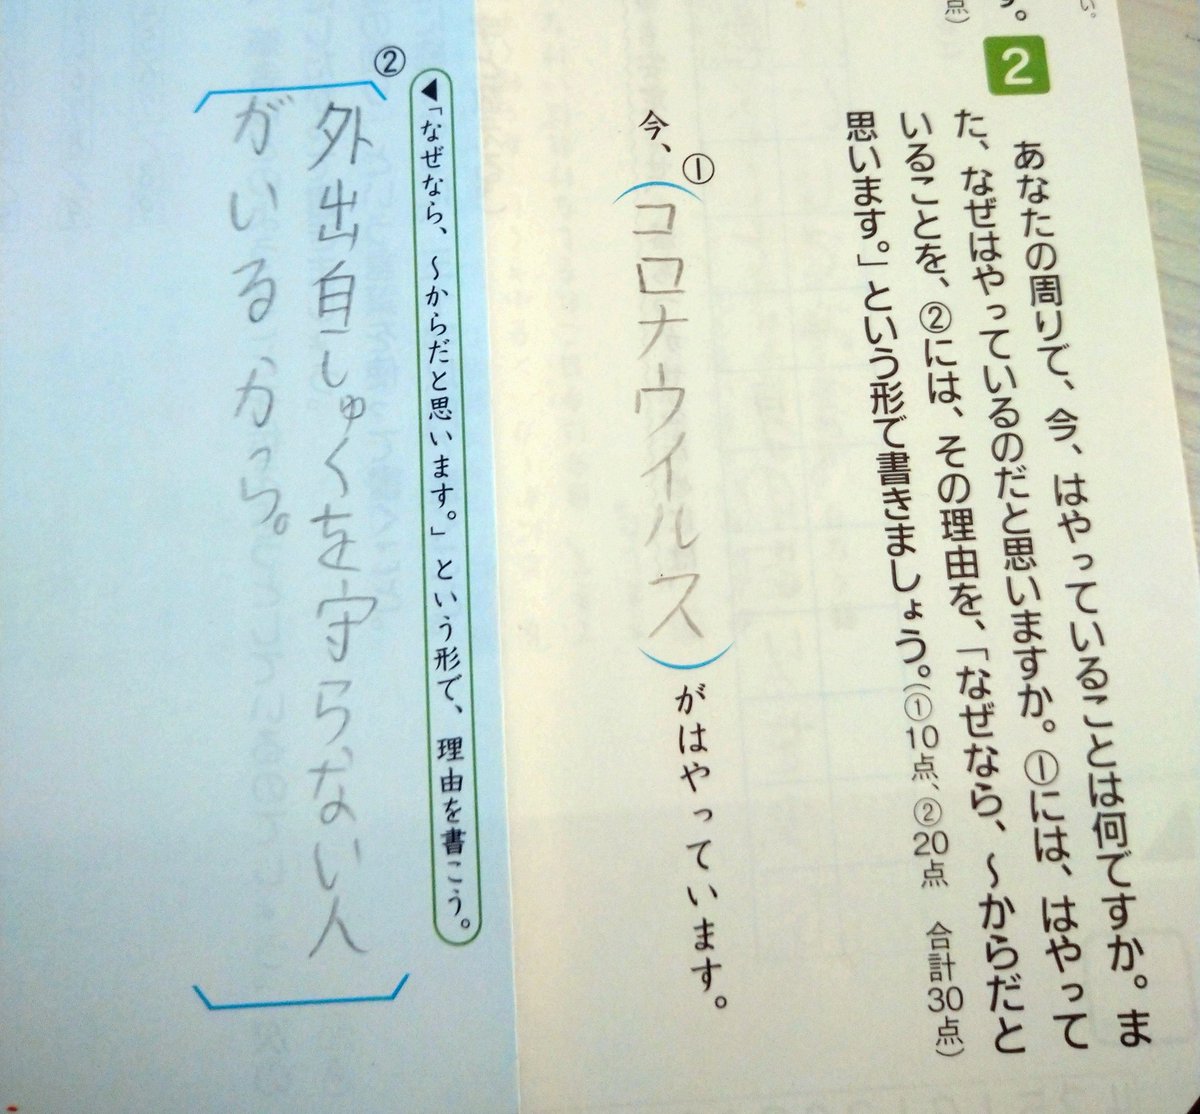 す。
点)
い。
2
あなたの周りで、今、はやっていることは何ですか。ま
た、なぜはやっているのだと思いますか。①には、はやって
いることを、②には、その理由を、「なぜなら、〜からだと
思います。」という形で書きましょう。(①10点、②20点 合計30点)
今、①(コロナウイルス)がはやっています。
◀「なぜなら、〜からだと思います。」という形で、理由を書こう。
②
外出自しゅくを守らない人
がいるから。